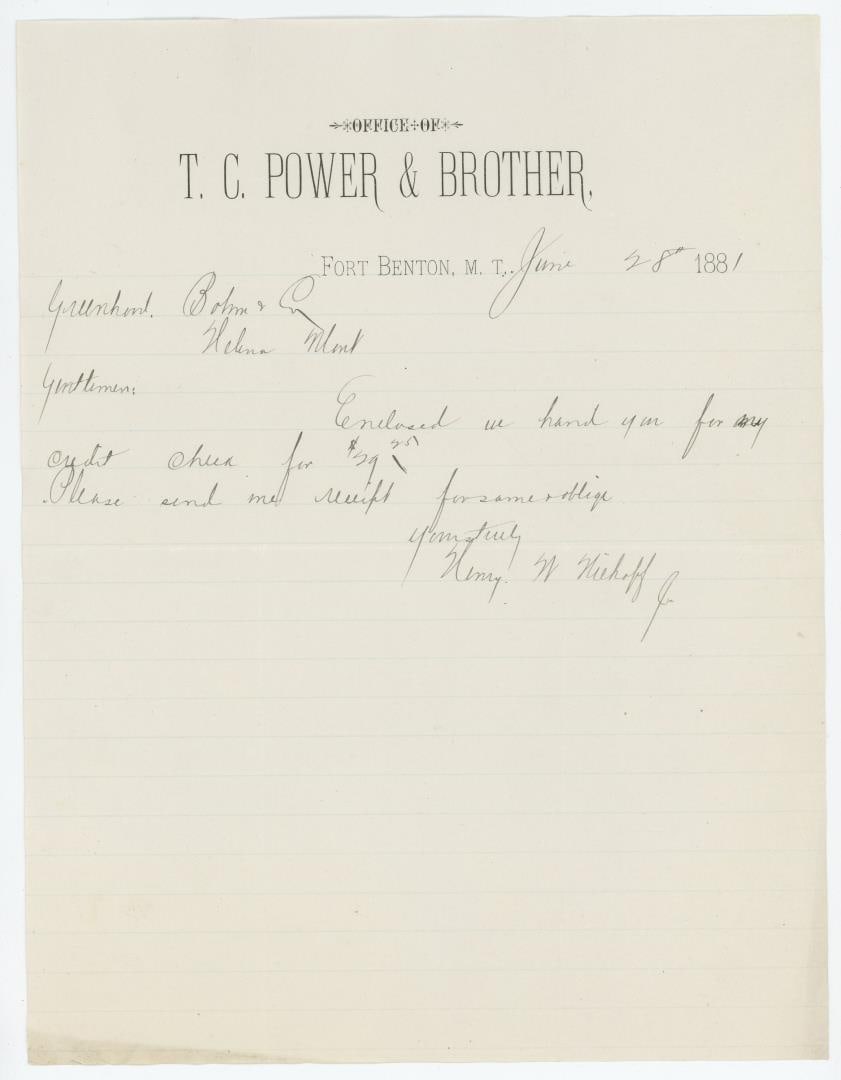 OFFICE OF
T. C. POWER & BROTHER,
FORT BENTON, M. T., June 28th 1881
Greenhood. Bohm & Co
Helena Mont
Gentlemen:
Enclosed we hand you for my
credit check for $29 25
Please send me receipt for same & oblige
Yours truly
Henry. W Niehoff Jr